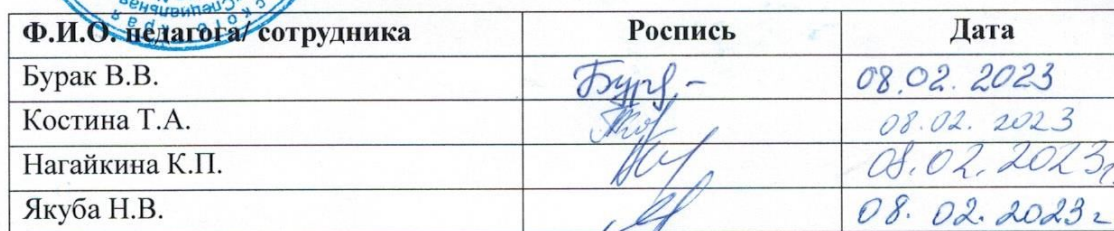 Специальная
ского края
Ф.И.О. педагога/ сотрудника Роспись Дата
Бурак В.В. 08.02.2023
Костина Т.А. 08.02.2023
Нагайкина К.П. 08.02.2023г.
Якуба Н.В. 08.02.2023г